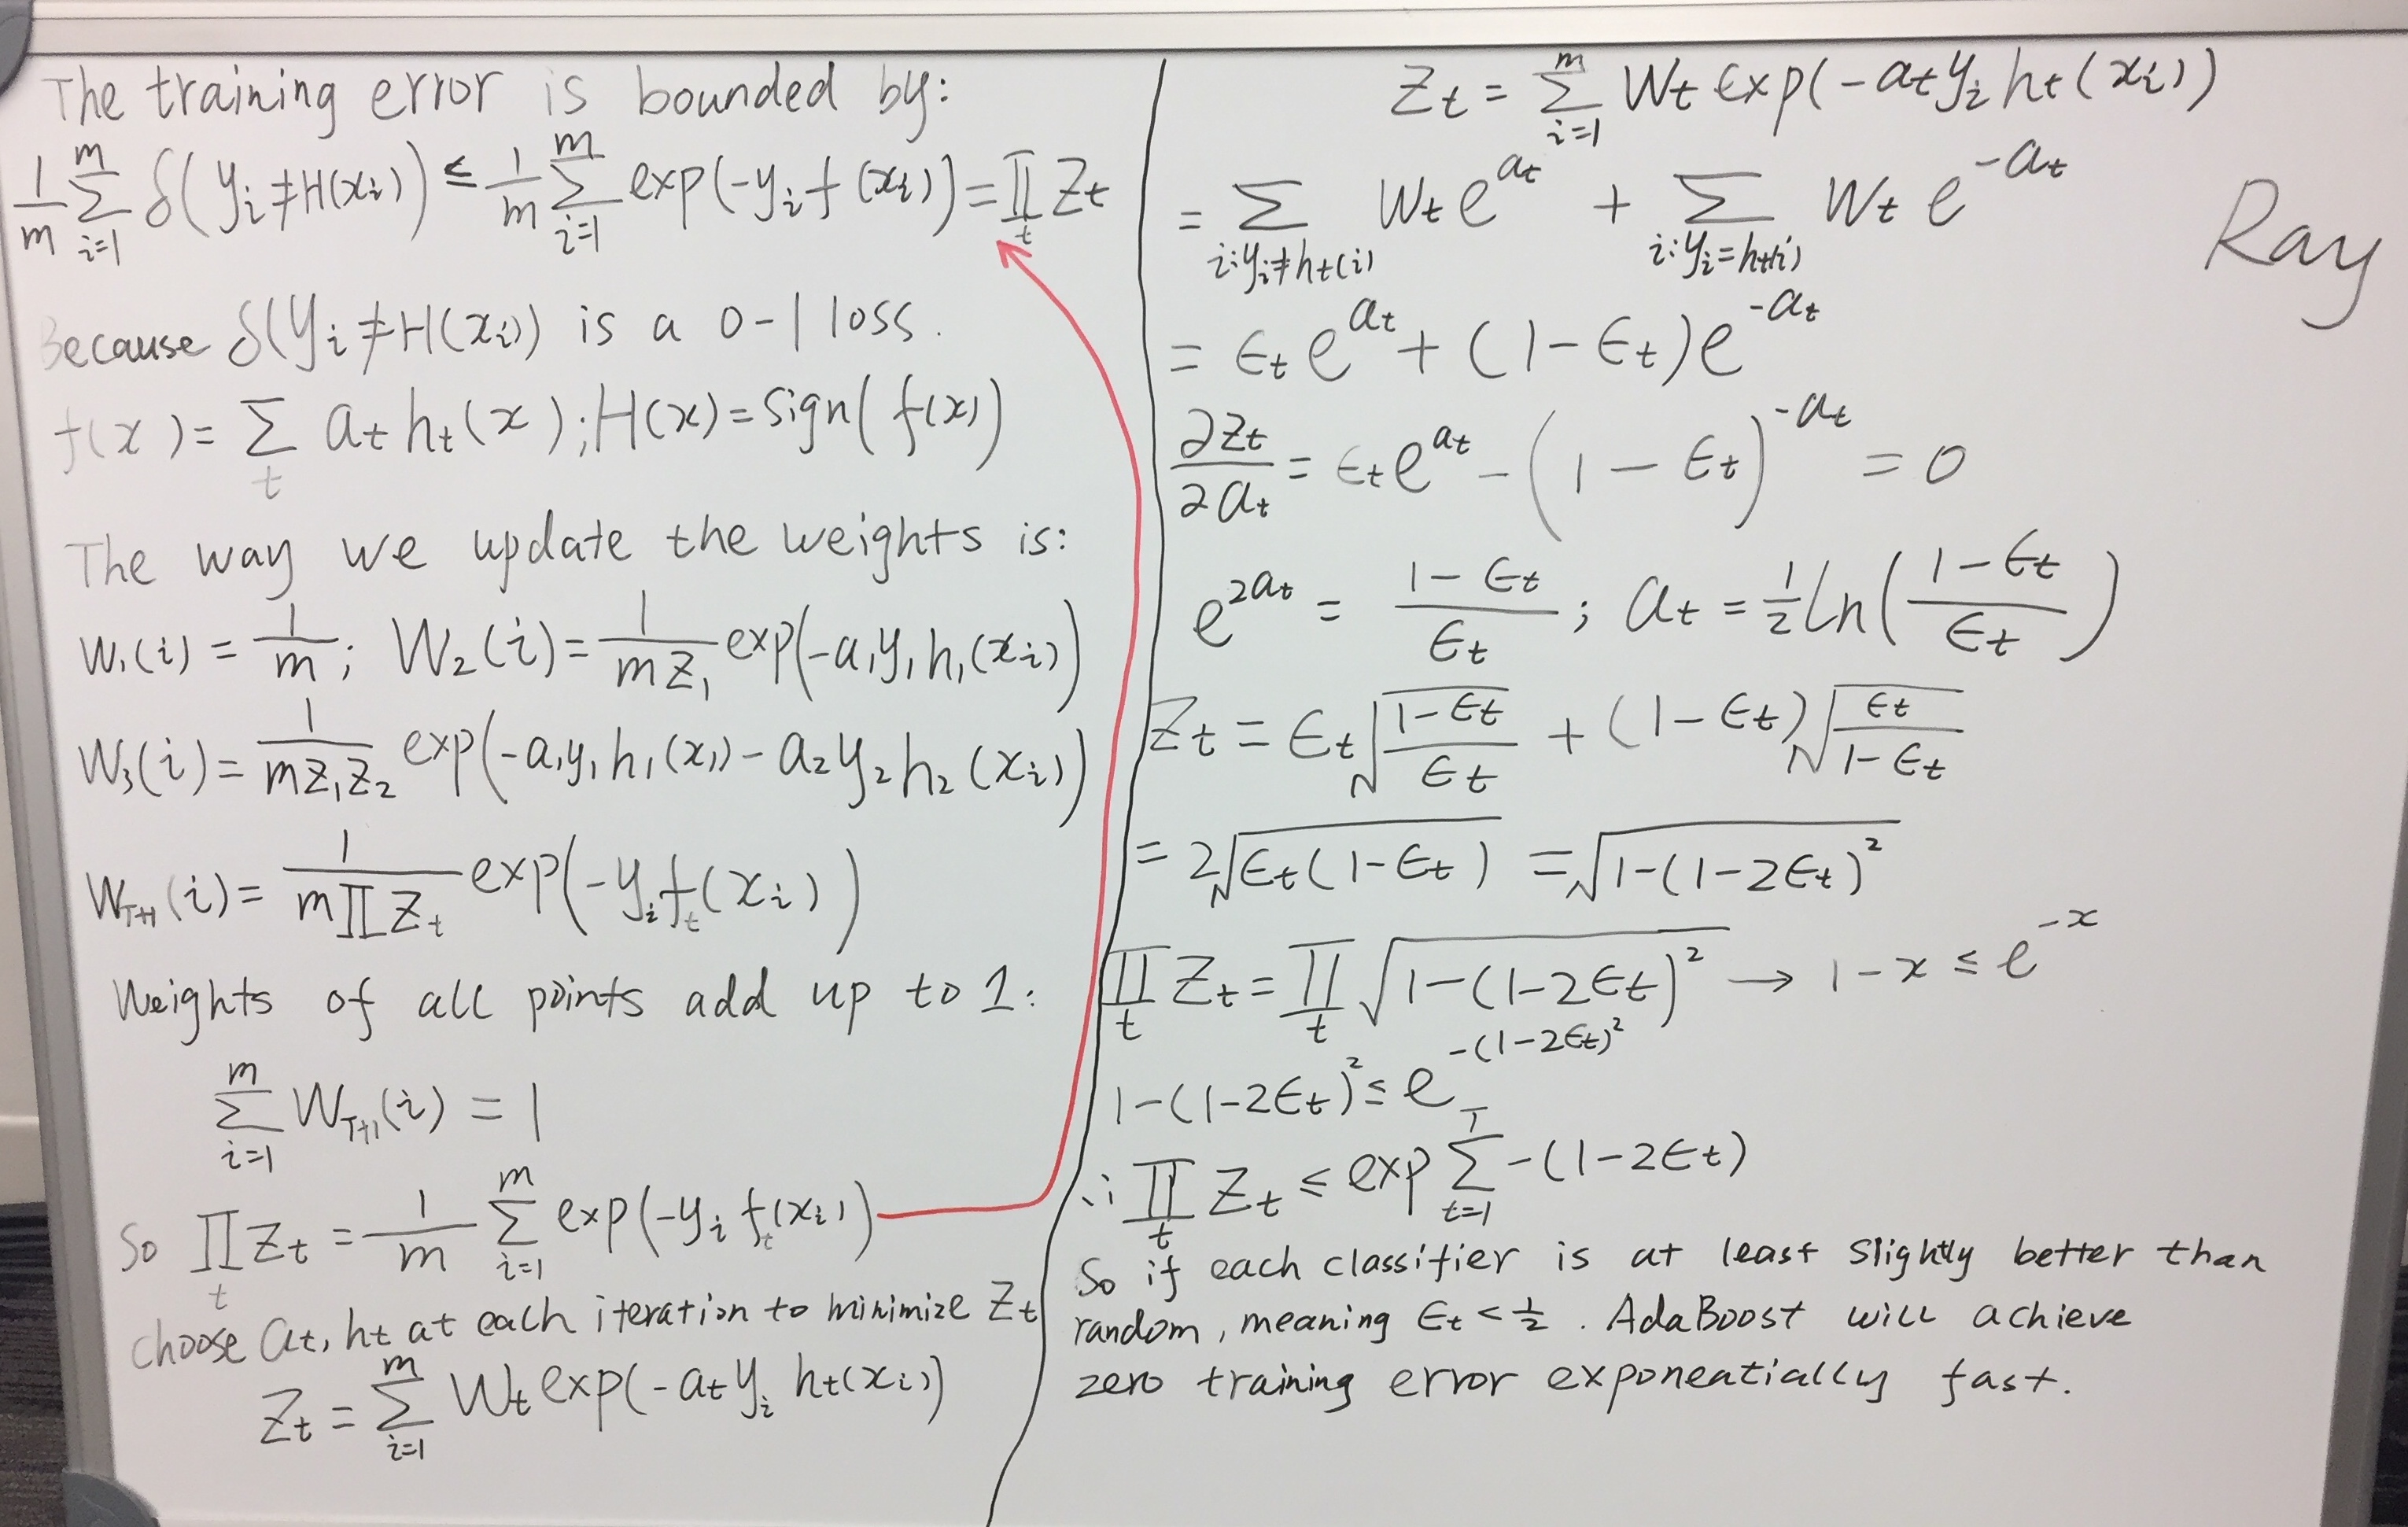 The training error is bounded by:
1/m ∑_{i=1}^{m} δ(y_i≠H(x_i)) ≤ 1/m ∑_{i=1}^{m} exp(-y_i f(x_i)) = ∏_t Z_t
Because δ(y_i≠H(x_i)) is a 0-1 loss.
f(x) = ∑_t a_t h_t(x); H(x) = Sign(f(x))
The way we update the weights is:
W_1(i) = 1/m; W_2(i) = 1/(m Z_1) exp(-a_1 y_1 h_1(x_i))
W_3(i) = 1/(m Z_1 Z_2) exp(-a_1 y_1 h_1(x_1) - a_2 y_2 h_2(x_i))
W_{T+1}(i) = 1/(m ∏ Z_t) exp(-y_i f_t(x_i))
Weights of all points add up to 1:
∑_{i=1}^{m} W_{T+1}(i) = 1
So ∏_t Z_t = 1/m ∑_{i=1}^{m} exp(-y_i f_t(x_i))
choose a_t, h_t at each iteration to minimize Z_t
Z_t = ∑_{i=1}^{m} W_t exp(-a_t y_i h_t(x_i))
Z_t = ∑_{i=1}^{m} W_t exp(-a_t y_i h_t(x_i))
= ∑_{i:y_i≠h_t(i)} W_t e^{a_t} + ∑_{i:y_i=h_t(i)} W_t e^{-a_t}
Ray
= ϵ_t e^{a_t} + (1-ϵ_t)e^{-a_t}
∂Z_t/∂a_t = ϵ_t e^{a_t} - (1-ϵ_t)^{-a_t} = 0
e^{2a_t} = (1-ϵ_t)/ϵ_t; a_t = 1/2 ln((1-ϵ_t)/ϵ_t)
Z_t = ϵ_t √((1-ϵ_t)/ϵ_t) + (1-ϵ_t)√(ϵ_t/(1-ϵ_t))
= 2√(ϵ_t(1-ϵ_t)) = √(1-(1-2ϵ_t)^2)
∏_t Z_t = ∏_t √(1-(1-2ϵ_t)^2) → 1-x ≤ e^{-x}
1-(1-2ϵ_t)^2 ≤ e^{-(1-2ϵ_t)^2}
∴ ∏_t Z_t ≤ exp ∑_{t=1}^{T} -(1-2ϵ_t)
So if each classifier is at least slightly better than
random, meaning ϵ_t < 1/2. AdaBoost will achieve
zero training error exponentially fast.